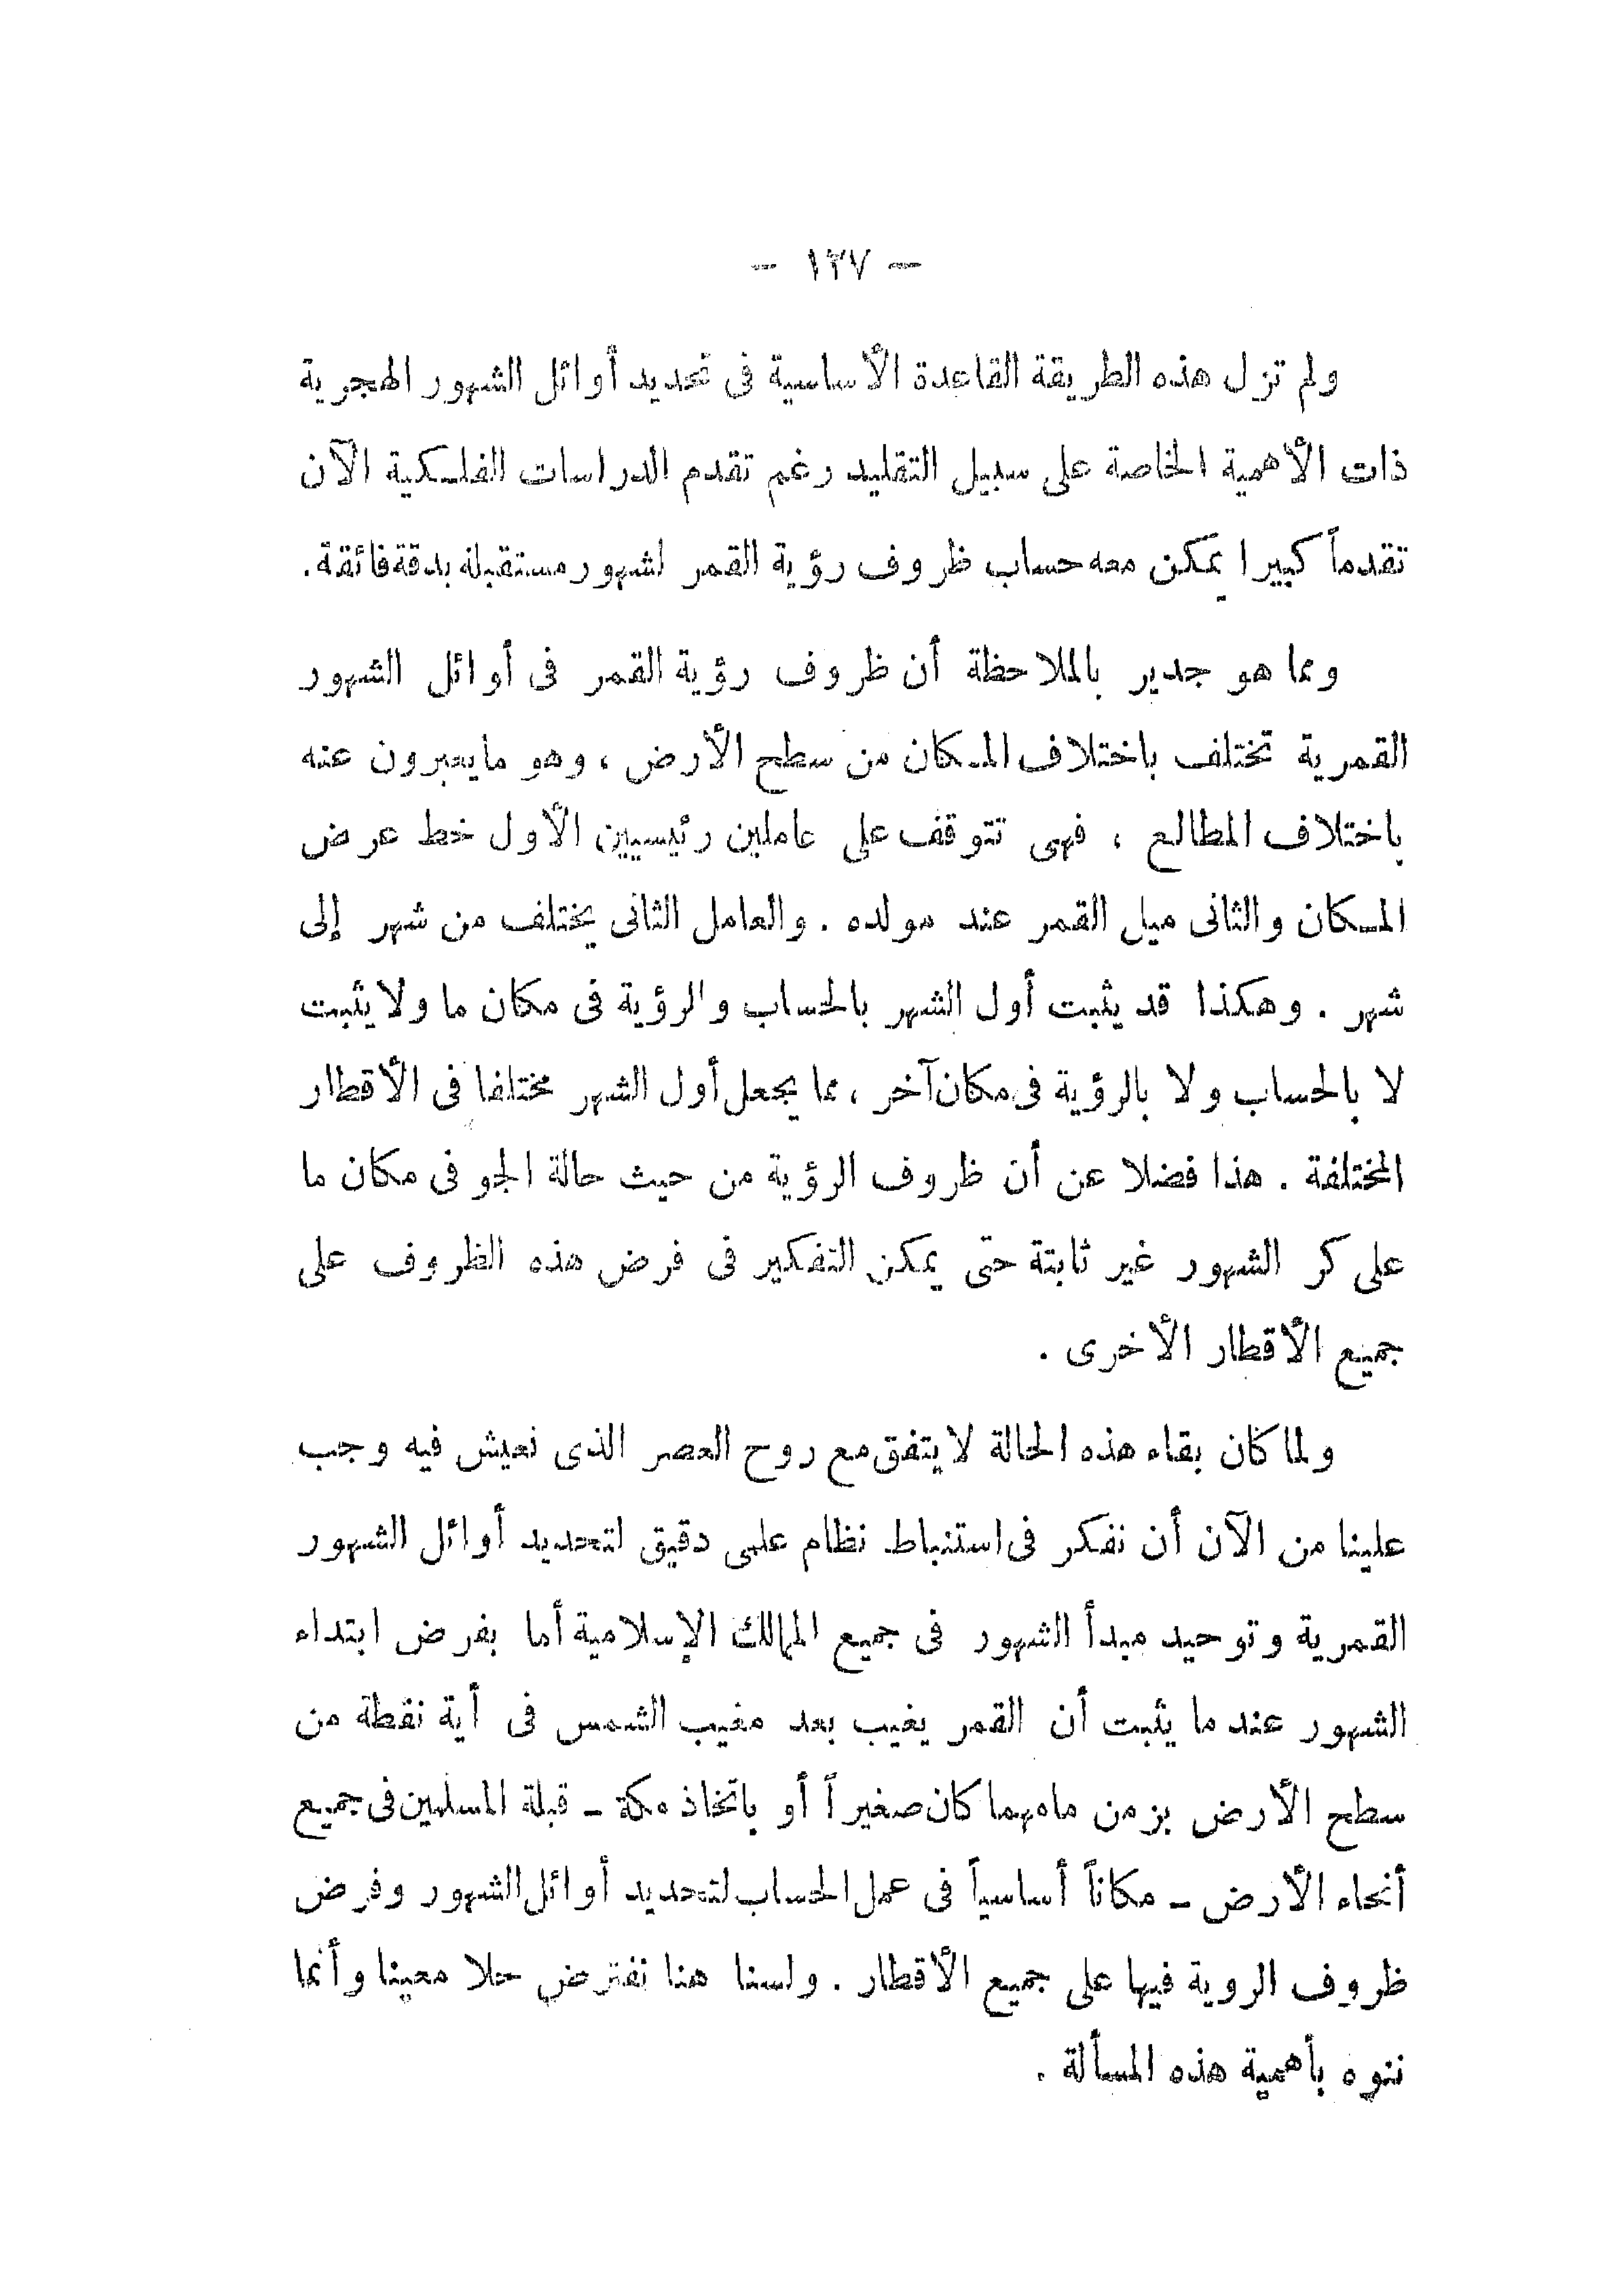 — ١٢٧ —
ولم تزل هذه الطريقة القاعدة الأساسية فى تحديد أوائل الشهور الهجرية
ذات الأهمية الخاصة على سبيل التقليد رغم تقدم الدراسات الفلكية الآن
تقدماً كبيرا يمكن معه حساب ظروف رؤية القمر لشهور مستقبلة بدقة فائقة.
ومما هو جدير بالملاحظة أن ظروف رؤية القمر فى أوائل الشهور
القمرية تختلف باختلاف المكان من سطح الأرض ، وهو ما يعبرون عنه
باختلاف المطالع ، فهى تتوقف على عاملين رئيسيين الأول خط عرض
المكان والثانى ميل القمر عند مولده . والعامل الثانى يختلف من شهر إلى
شهر . وهكذا قد يثبت أول الشهر بالحساب والرؤية فى مكان ما ولا يثبت
لا بالحساب ولا بالرؤية فى مكان آخر ، مما يجعل أول الشهر مختلفا فى الأقطار
المختلفة . هذا فضلا عن أن ظروف الرؤية من حيث حالة الجو فى مكان ما
على كر الشهور غير ثابتة حتى يمكن التفكير فى فرض هذه الظروف على
جميع الأقطار الأخرى .
ولما كان بقاء هذه الحالة لا يتفق مع روح العصر الذى نعيش فيه وجب
علينا من الآن أن نفكر فى استنباط نظام علمى دقيق لتحديد أوائل الشهور
القمرية وتوحيد مبدأ الشهور فى جميع الممالك الإسلامية أما بفرض ابتداء
الشهور عند ما يثبت أن القمر يغيب بعد مغيب الشمس فى أية نقطة من
سطح الأرض بزمن ما مهما كان صغيراً أو باتخاذ مكة – قبلة المسلمين فى جميع
أنحاء الأرض – مكاناً أساسياً فى عمل الحساب لتحديد أوائل الشهور وفرض
ظروف الروية فيها على جميع الأقطار . ولسنا هنا نفترض حلا معينا وأنما
ننوه بأهمية هذه المسألة .